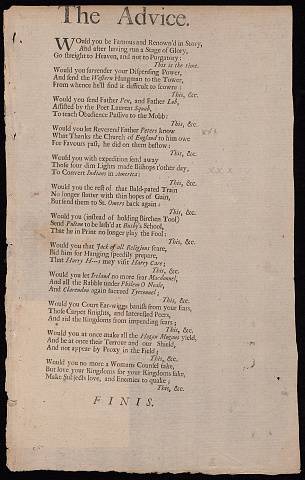 The Advice.
WOuld you be Famous and Renown'd in Story,
And after having run a Stage of Glory,
Go streight to Heaven, and not to Purgatory:
This is the time.
Would you surrender your Dispensing Power,
And send the Western Hangman to the Tower,
From whence he'll find it difficult to scowre:
This, &c.
Would you send Father Pen, and Father Lob,
Assisted by the Poet Laureat Squob,
To teach Obedience Passive to the Mobb:
This, &c.
Would you let Reverend Father Peters know
What Thanks the Church of England to him owe
For Favours past, he did on them bestow:
This, &c.
Would you with expedition send away
Those four dim Lights made Bishops t'other day,
To Convert Indians in America:
This, &c.
Would you the rest of that Bald-pated Train
No longer flatter with thin hopes of Gain,
But send them to St. Omers back again:
This, &c.
Would you (instead of holding Birchen Tool)
Send Pulton to be lash'd at Busby's School,
That he in Print no longer play the Fool:
This, &c.
Would you that Jack of all Religions scare,
Bid him for Hanging speedily prepare,
That Harry H---s may visit Harry Care:
This, &c.
Would you let Ireland no more fear Macdonnel,
And all the Rabble under Phelem O Neale,
And Clarendon again succeed Tyrconnel:
This, &c.
Would you Court Ear-wiggs banish from your Ears,
Those Carpet Knights, and Interessed Peers,
And rid the Kingdoms from impending fears:
This, &c.
Would you at once make all the Hogan Mogans yield,
And be at once their Terrour and our Shield,
And not appear by Proxy in the Field:
This, &c.
Would you no more a Womans Counsel take,
But love your Kingdoms for your Kingdoms sake,
Make Subjects love, and Enemies to quake:
This, &c.
FINIS.